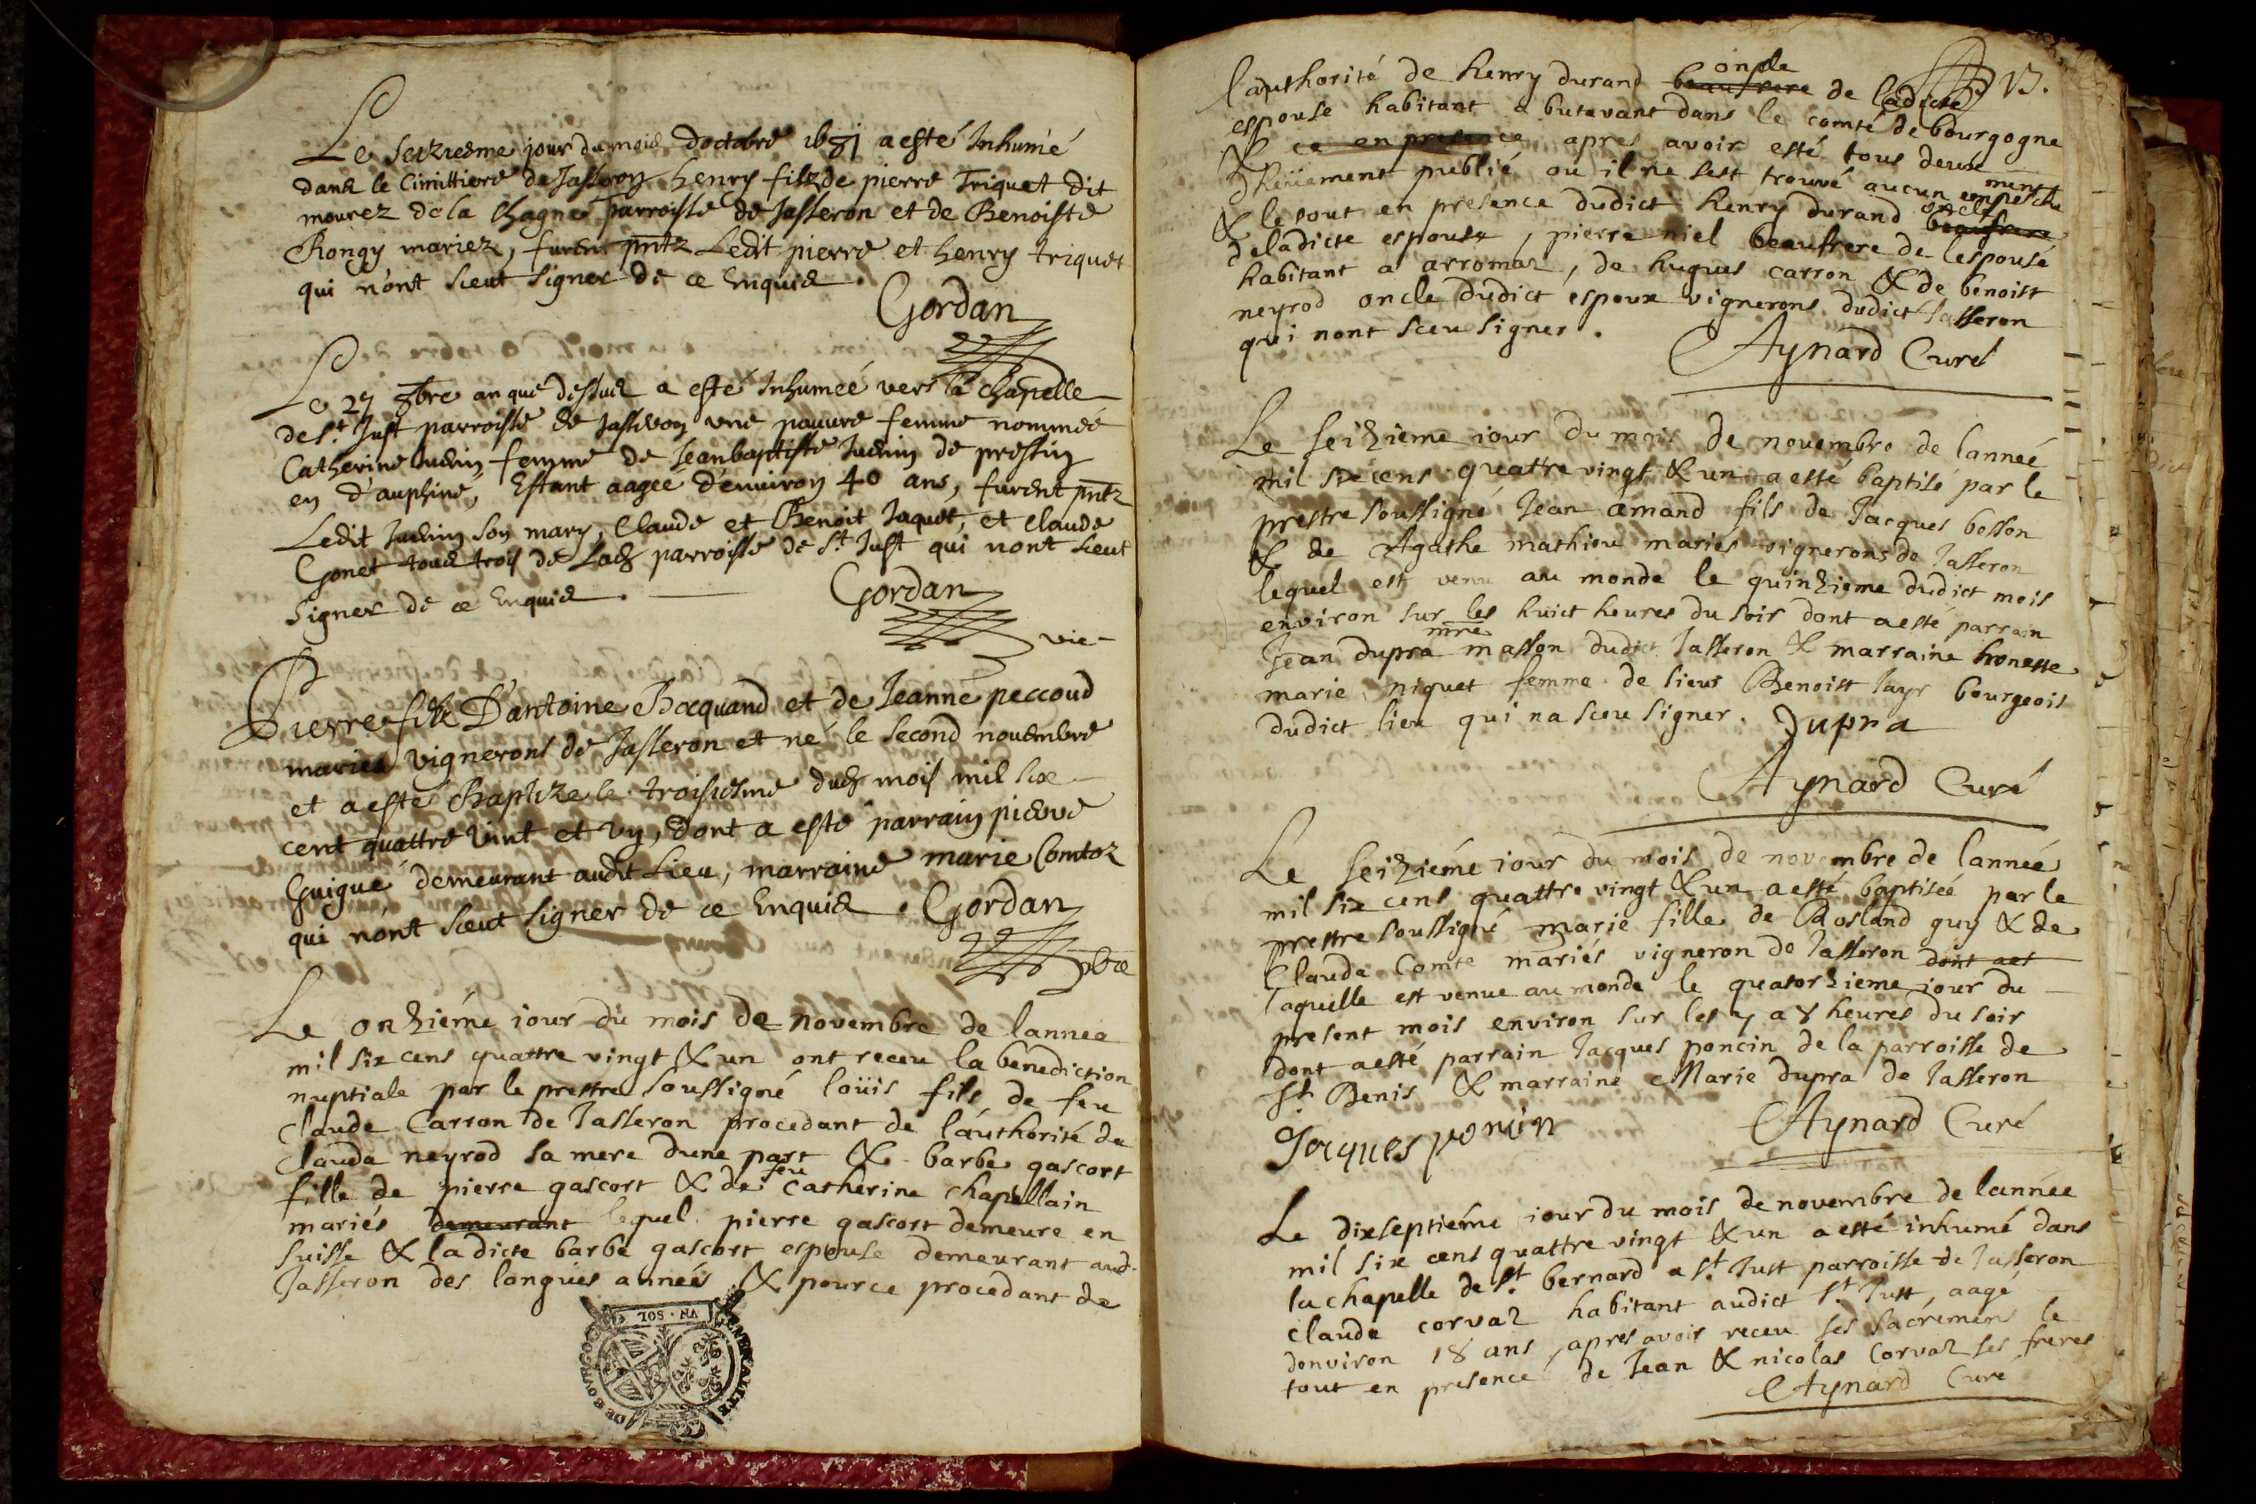 Le seiziesme jour du mois doctobre 1681 a esté Inhumé
dans le Cimittiere de Jasseron henry filz de pierre Triquet dit
mourez de la Chagne parroisse de Jasseron et de Benoiste
Rongy mariez, furent pntz Ledit pierre et henry triquet
qui n'ont sceut signer de ce Enquis.
Gordan
Le 27 8bre an que dessus a esté Inhumeé vers la chapelle
de st Just parroisse de Jasseron une pauure femme nommée
Catherine Judin femme de Jean baptiste Judin de pressin
en d'auphiné, Estant aagée d'enuiron 40 ans, furent pntz
Ledit Judin son mary, Claude et Benoit Jaquet, et Claude
Gonet tous trois de Lad parroisse de st Just qui nont sceut
signer de ce Enquis.
Gordan
vic
Pierre filz D'antoine Bocquand et de Jeanne peccoud
mariés vignerons de Jasseron et né le second nouembre
et a esté Baptize le troisiesme dud mois mil six
cent quattre vint et vn, dont a esté parrain pierre
Guigue demeurant audit Lieu, marraine marie Comtoz
qui n'ont sceut signer de ce Enquis. Gordan
pbre
Le onziéme iour du mois de novembre de lannee
mil six cens quattre vingt & un ont receu la bénediction
nuptiale par le prestre soussigné loüis fils de feu
claude Carron de Jasseron procedant de l'authorité de
Claude neyrod sa mere dune part & barbe gascort
fille de pierre gascort & de feu Catherine chapellain
mariés demeurant lequel pierre gascort demeure en
suisse & ladicte barbe gascort espouse demeurant aud
Jasseron des longues années & pource procedant de
VN · SOL
GENERALITE
DE BOVRGOG
13.
l'authorité de henry durand beaufrere oncle de ladicte
espouse habitant a butavant dans le comté de bourgogne
& ce en presence apres avoir esté tous deux
dheüement publié ou il ne sest trouvé aucun empeschement
& le tout en presence dudict henry durand beaufrere oncle
deladicte espouse, pierre niel beaufrere de lespouse
habitant a arromaz, de hugues carron & de benoist
neyrod oncle dudict espoux vignerons dudict Jasseron
qui nont sceu signer.
Aynard Curé
Le seizieme iour du mois de novembre de lanneé
mil six cens quattre vingt & un a esté baptisé par le
prestre soussigné Jean amand fils de Jacques besson
& de Agathe mathieu mariés vignerons de Jasseron
lequel est venu au monde le quinzieme dudict mois
environ sur les huict heures du soir dont a esté parrain
Jean dupra mre masson dudict Jasseron & marraine honeste
marie niquet femme de sieur Benoist Jayr bourgeois
dudict lieu qui na sceu signer. Dupra
Aynard Curé
Le seiziéme iour du mois de novembre de lanneé
mil six cens quattre vingt & un a esté baptisée par le
prestre soussigné marie fille de Rosland guy & de
Claude Comte mariés vigneron de Jasseron dont aest
laquelle est venue au monde le quatorzieme iour du
present mois environ sur les 7 a 8 heures du soir
dont a esté parrain Jacques poncin de la parroisse de
st Denis & marraine Marie dupra de Jasseron
Jacques poncin
Aynard Curé
Le dixseptiéme iour du mois de novembre de lannée
mil six cens quattre vingt & un a esté inhumé dans
la chapelle de st bernard a st Just parroisse de Jasseron
claude corvaz habitant audict st Just, aagé
denviron 18 ans, apres avoir receu ses sacremens le
tout en presence de Jean & nicolas Corvaz ses freres
Aynard Curé